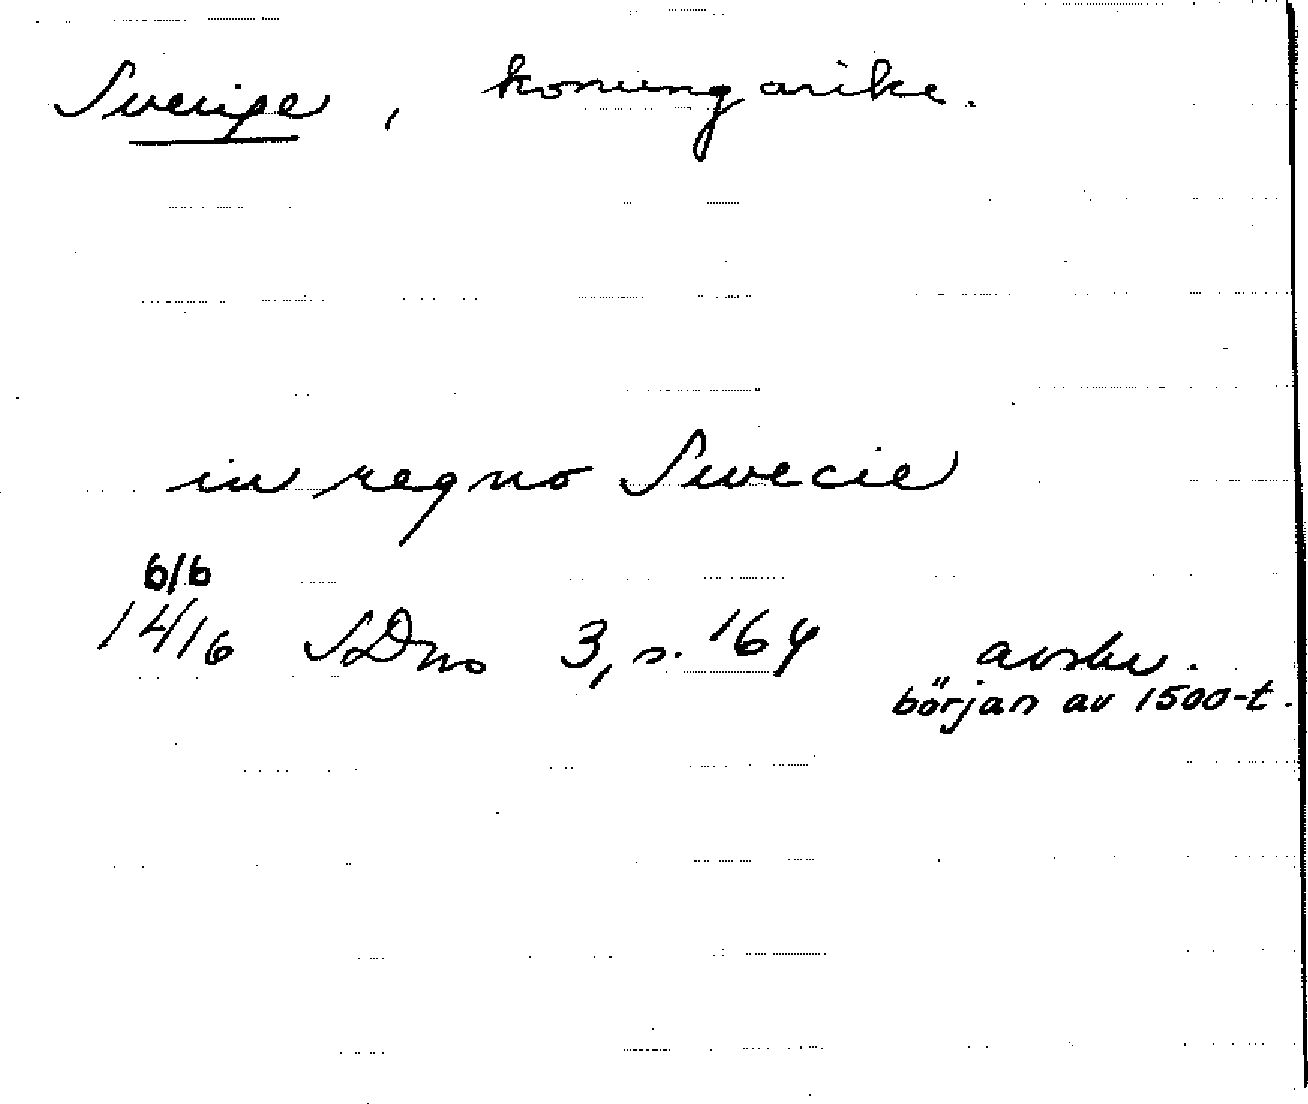 Sverige, konungarike.
in regno Swecie
6/6
1416 SDns 3, s. 164 avskr.
början av 1500-t.